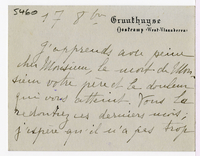 5460
17 8bre
Gruuthuyse
Oostcamp (West-Vlaanderen)
J'apprends avec peine
cher Monsieur, la mort de Mon
sieur votre père et la douleur
qui vous atteint. Vous la
redoutiez ces derniers mois,
j'espère qu'il n'a pas trop